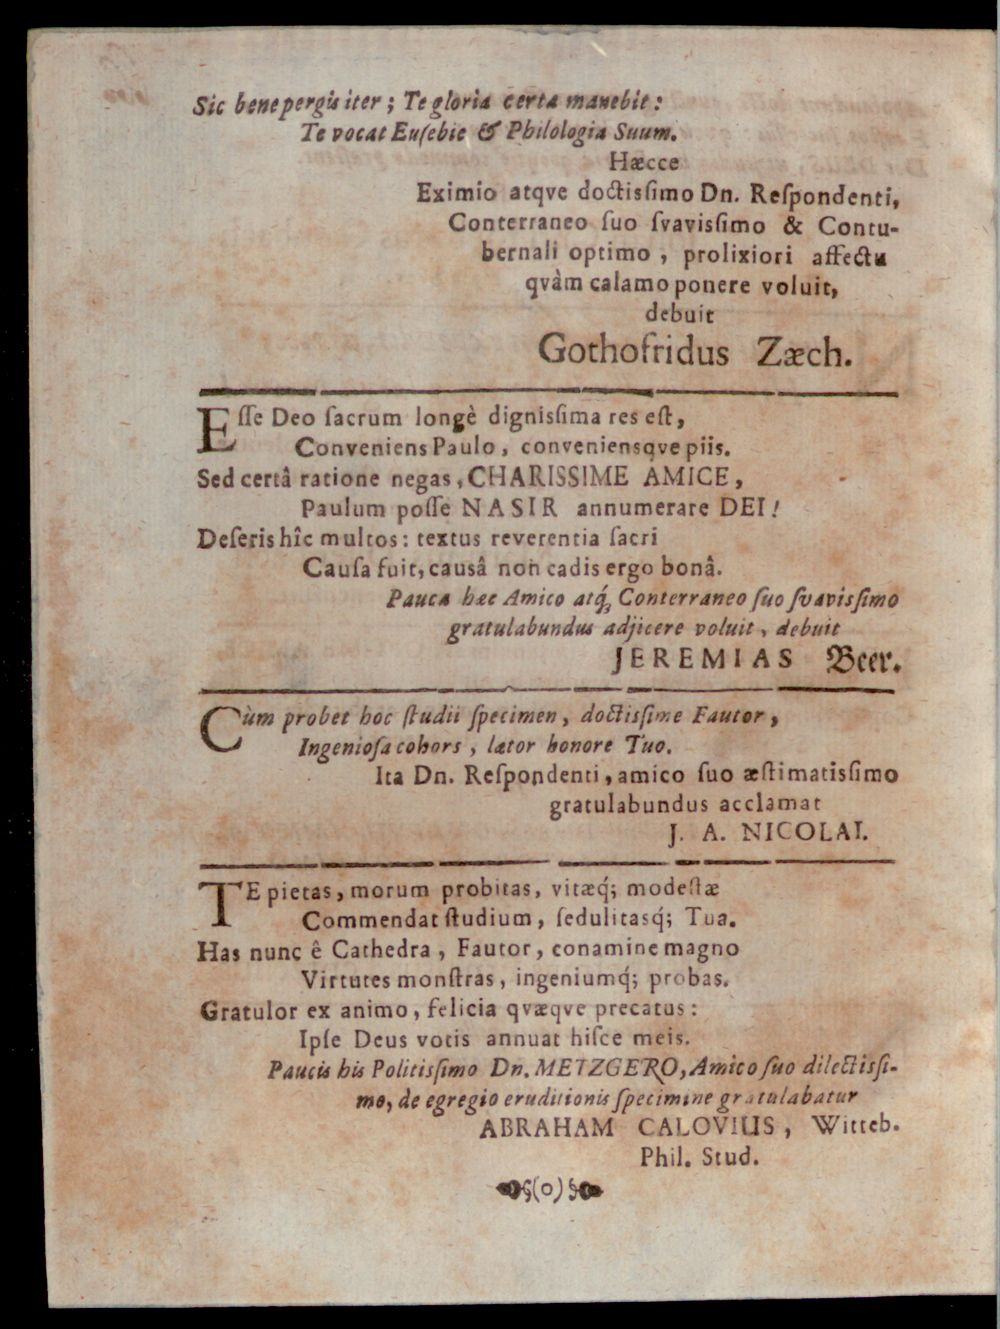 Sic bene pergis iter; Te gloria certa manebit:
Te vocat Euſebie & Philologia Suum.
Hæcce
Eximio atqve doctisſimo Dn. Reſpondenti,
Conterraneo ſuo ſvavisſimo & Contu-
bernali optimo, prolixiori affectu
qvàm calamo ponere voluit,
debuit
Gothofridus Zæch.
Eſſe Deo ſacrum longè dignisſima res eſt,
Conveniens Paulo, conveniensqve piis.
Sed certâ ratione negas, CHARISSIME AMICE,
Paulum poſſe NASIR annumerare DEI!
Deſeris hîc multos: textus reverentia ſacri
Cauſa fuit, causâ non cadis ergo bonâ.
Pauca hæc Amico atq́; Conterraneo ſuo ſvavisſimo
gratulabundus adjicere voluit, debuit
JEREMIAS Beer.
Cùm probet hoc ſtudii ſpecimen, doctisſime Fautor,
Ingenioſa cohors, lætor honore Tuo.
Ita Dn. Reſpondenti, amico ſuo æſtimatisſimo
gratulabundus acclamat
J. A. NICOLAI.
TE pietas, morum probitas, vitæq́; modeſtæ
Commendat ſtudium, ſedulitasq́; Tua.
Has nunc ê Cathedra, Fautor, conamine magno
Virtutes monſtras, ingeniumq́; probas.
Gratulor ex animo, felicia qvæqve precatus:
Ipſe Deus votis annuat hiſce meis.
Paucis his Politisſimo Dn. METZGERO, Amico ſuo dilectisſi-
mo, de egregio eruditionis ſpecimine gratulabatur
ABRAHAM CALOVIUS, Witteb.
Phil. Stud.
(o)